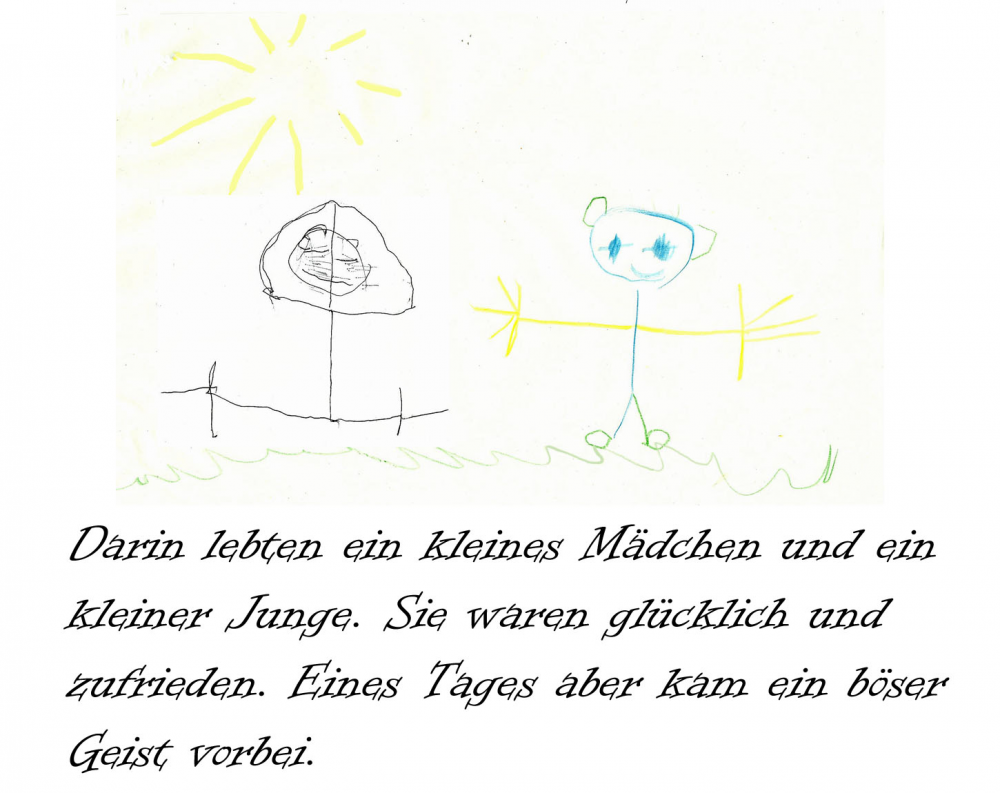 Darin lebten ein kleines Mädchen und ein
kleiner Junge. Sie waren glücklich und
zufrieden. Eines Tages aber kam ein böser
Geist vorbei.